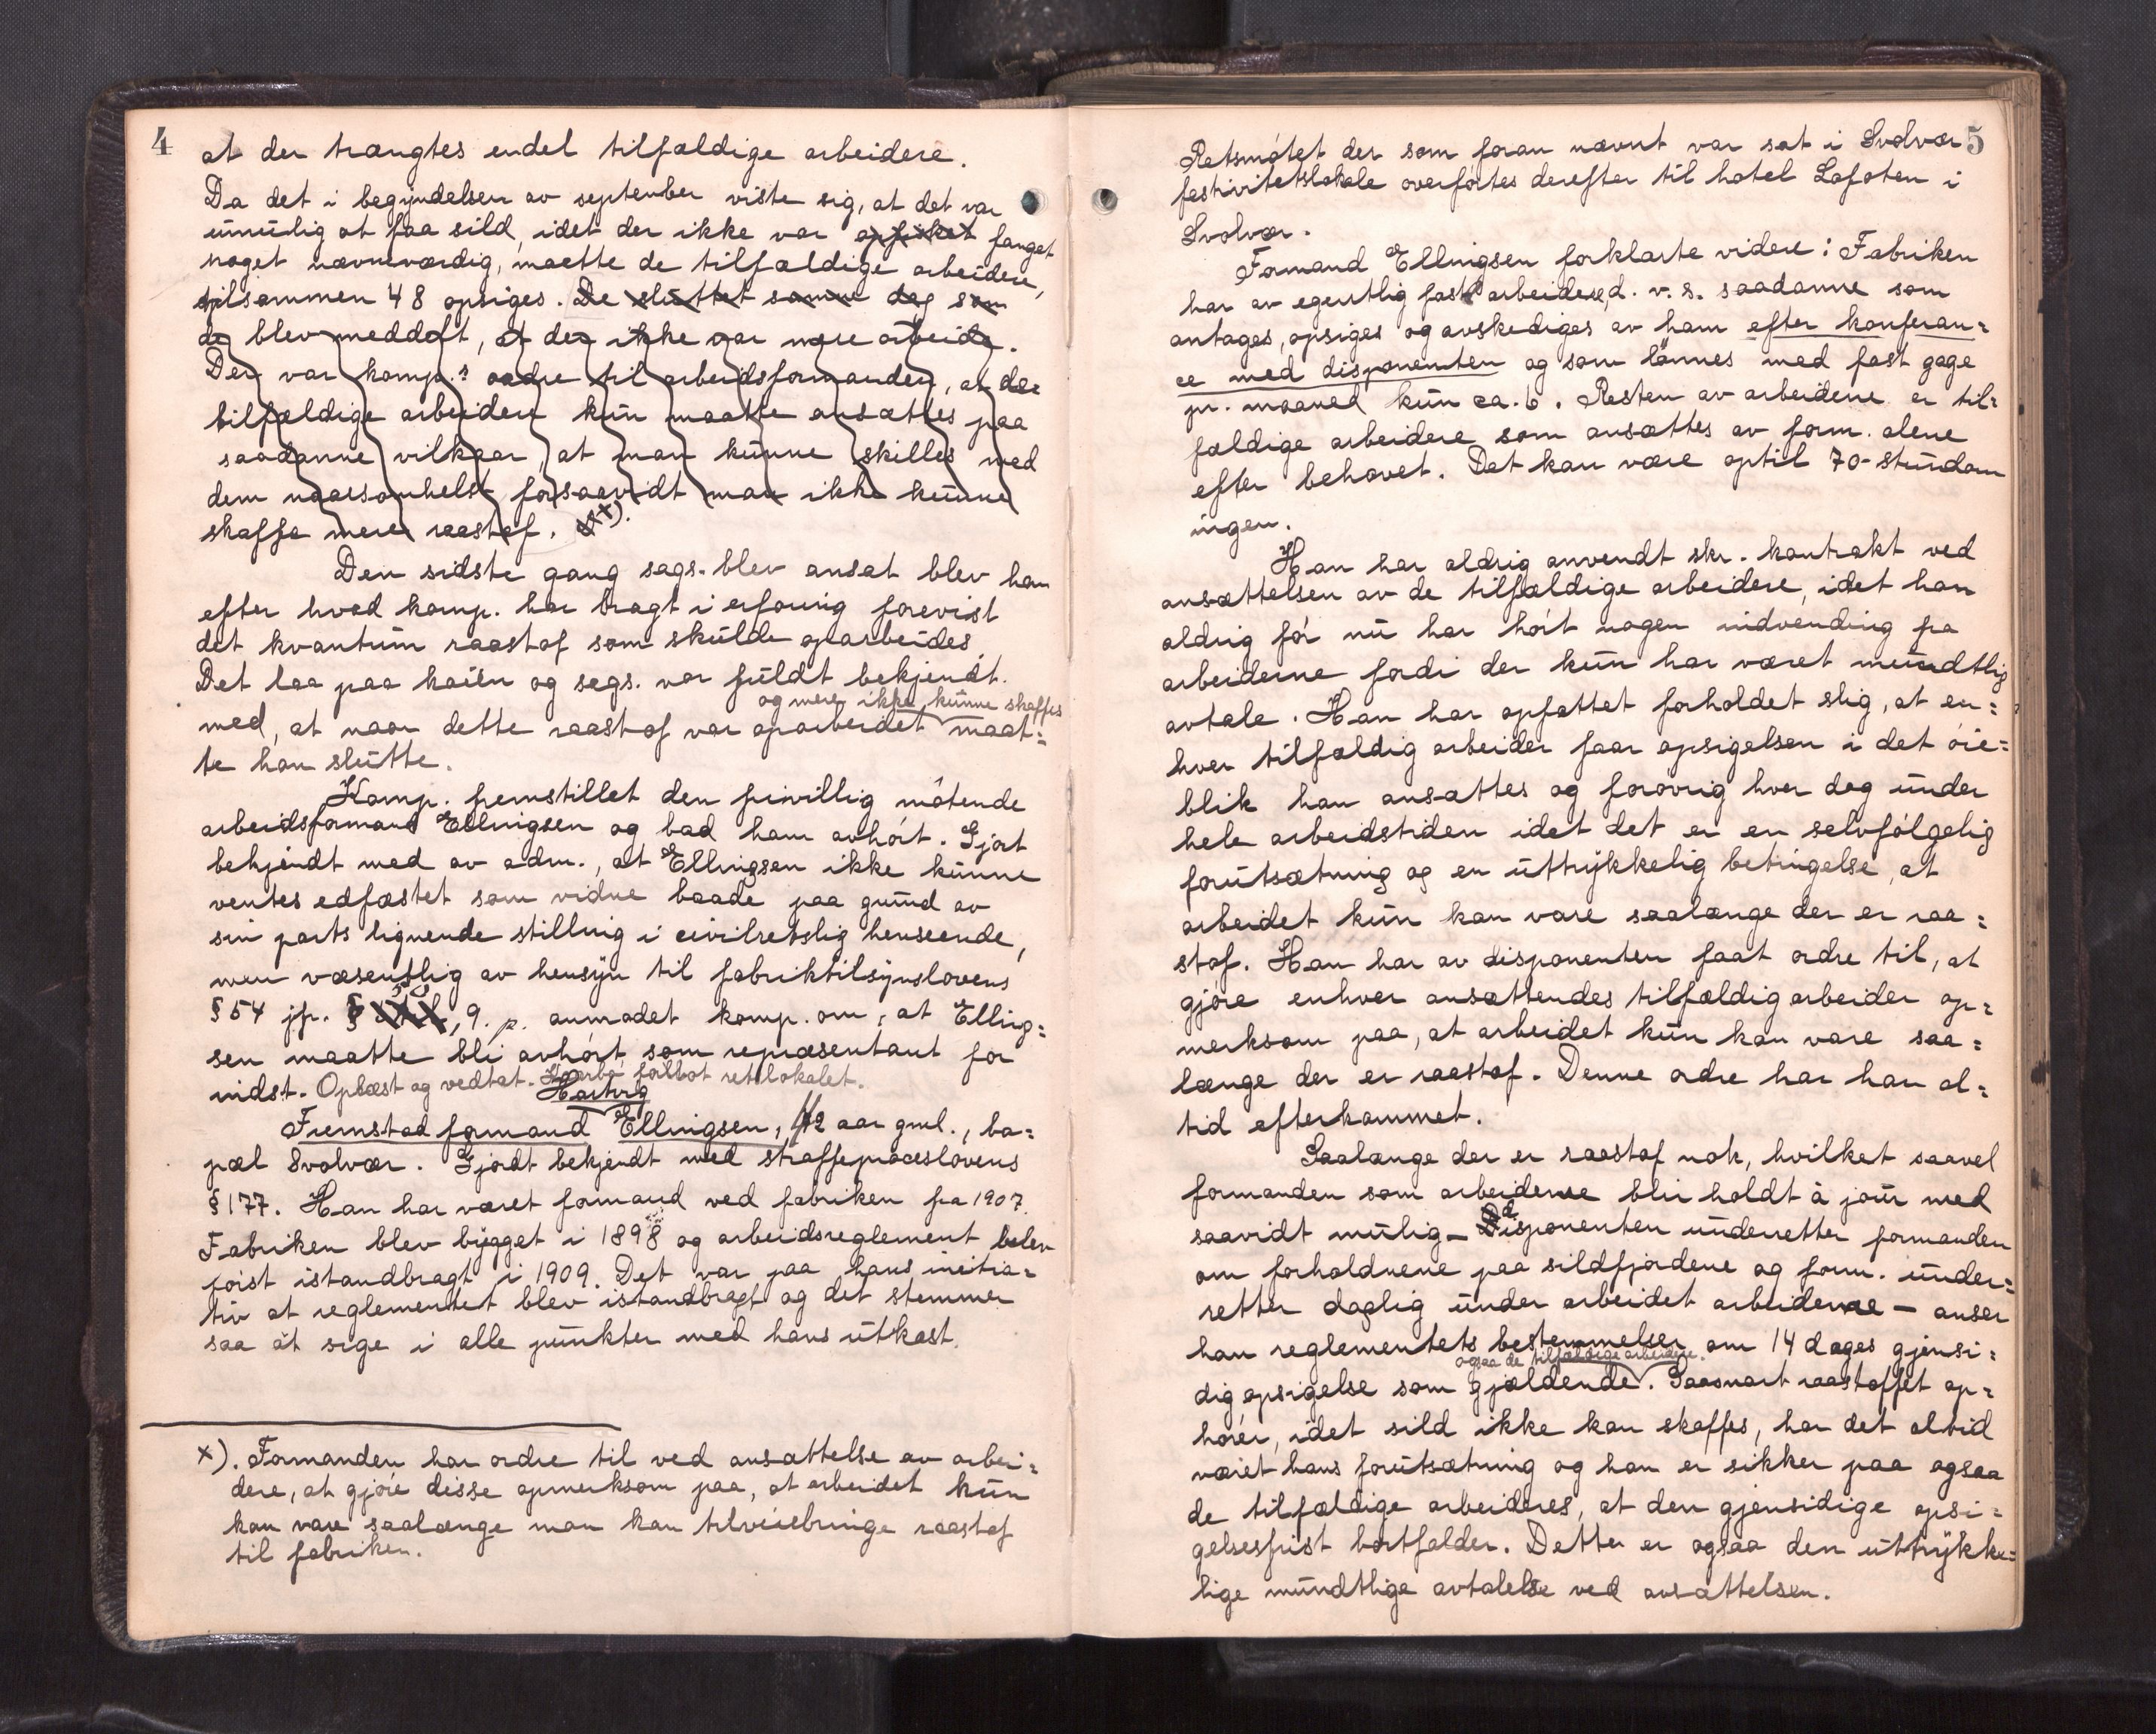 4
at der trængtes endel tilfældige arbeidere.
Da det i begyndelsen av september viste sig, at det var
umulig at faa sild, idet der ikke var opfisket fanget
noget nævneværdig, maatte de tilfældige arbeidere,
tilsammen 48 opsiges. De sluttet samme dag som
de blev meddelt, at der ikke var mere arbeide.
Der var komp.s ordre til arbeidsformanden, at de
tilfældige arbeidere kun maatte ansættes paa
saadanne vilkaar, at man kunne skilles med
dem naarsomhelst forsaavidt man ikke kunne
skaffe mere raastof. x).
Den sidste gang sags. blev ansat blev han
efter hvad komp. har bragt i erfaring forevist
det kvantum raastof som skulde oparbeides.
Det laa paa kaien og sags. var fuldt bekjendt
og mere ikke kunne skaffes
med, at naar dette raastof var oparbeidet maat=
te han slutte.
Komp. fremstillet den frivillig mötende
arbeidsformand Ellingsen og bad ham avhört. Gjort
bekjendt med av adm., at Ellingsen ikke kunne
ventes edfæstet som vidne baade paa grund av
sin parts lignende stilling i civilretslig henseende,
men væsentlig av hensyn til fabriktilsynslovens
§ 54 jfr. § 9. p. anmodet komp. om, at Elling=
sen maatte bli avhört som repræsentant for
indst. Oplæst og vedtat. forlot retslokalet.
Hartvig
Fremstod formand Ellingsen, 42 aar gml., bo=
pæl Svolvær. Gjordt bekjendt med straffeproceslovens
§ 177. Han har været formand ved fabriken fra 1907.
Fabriken blev bygget i 1898 og arbeidsreglement blev
först istandbragt i 1909. Det var paa hans initia=
tiv at reglementet blev istandbragt og det stemmer
saa at sige i alle punkter med hans utkast.
x). Formanden har ordre til ved ansættelse av arbei=
dere, at gjöre disse opmerksom paa, at arbeidet kun
kan vare saalænge man kan tilveiebringe raastof
til fabriken.
5
Retsmötet der som foran nævnt var sat i Svolvær
festivitetslokale overförtes derefter til hotel Lofoten i
Svolvær.
Formand Ellingsen forklarte videre: Fabriken
har av egentlig fast arbeidere, d. v. s. saadanne som
antages, opsiges og avskediges av ham efter konferan=
ce med disponenten og som lönnes med fast gage
pr. maaned kun ca. 6. Resten av arbeiderne er til=
fældige arbeidere som ansættes av form. alene
efter behovet. Det kan være optil 70 - stundom
ingen.
Han har aldrig anvendt skr. kontrakt ved
ansættelsen av de tilfældige arbeidere, idet han
aldrig för nu har hört nogen indvending fra
arbeiderne fordi der kun har været mundtlig
avtale. Han har opfattet forholdet slig, at en=
hver tilfældig arbeider faar opsigelsen i det öie=
blik han ansættes og forövrig hver dag under
hele arbeidstiden idet det er en selvfölgelig
forutsætning og en uttrykkelig betingelse, at
arbeidet kun kan vare saalænge der er raa=
stof. Han har av disponenten faat ordre til, at
gjöre enhver ansættendes tilfældig arbeider op=
merksom paa, at arbeidet kun kan vare saa=
længe der er raastof. Denne ordre har han al=
tid efterkommet.
Saalænge der er raastof nok, hvilket saavel
formanden som arbeiderne blir holdt à jour med
saavidt mulig - Disponenten underretter formanden
om forholdnene paa sildfjordene og form. under=
retter daglig under arbeidet arbeiderne - anser
han reglementets bestemmelser om 14 dages gjensi=
ogsaa de tilfældige arbeidere.
dig opsigelse som gjældende. Saasnart raastoffet op=
hörer, idet sild ikke kan skaffes, har det altid
været hans forutsætning og han er sikker paa ogsaa
de tilfældige arbeideres, at den gjensidige opsi=
gelsesfrist bortfalder. Dette er ogsaa den uttrykke=
lige mundtlige avtalelse ved ansættelsen.